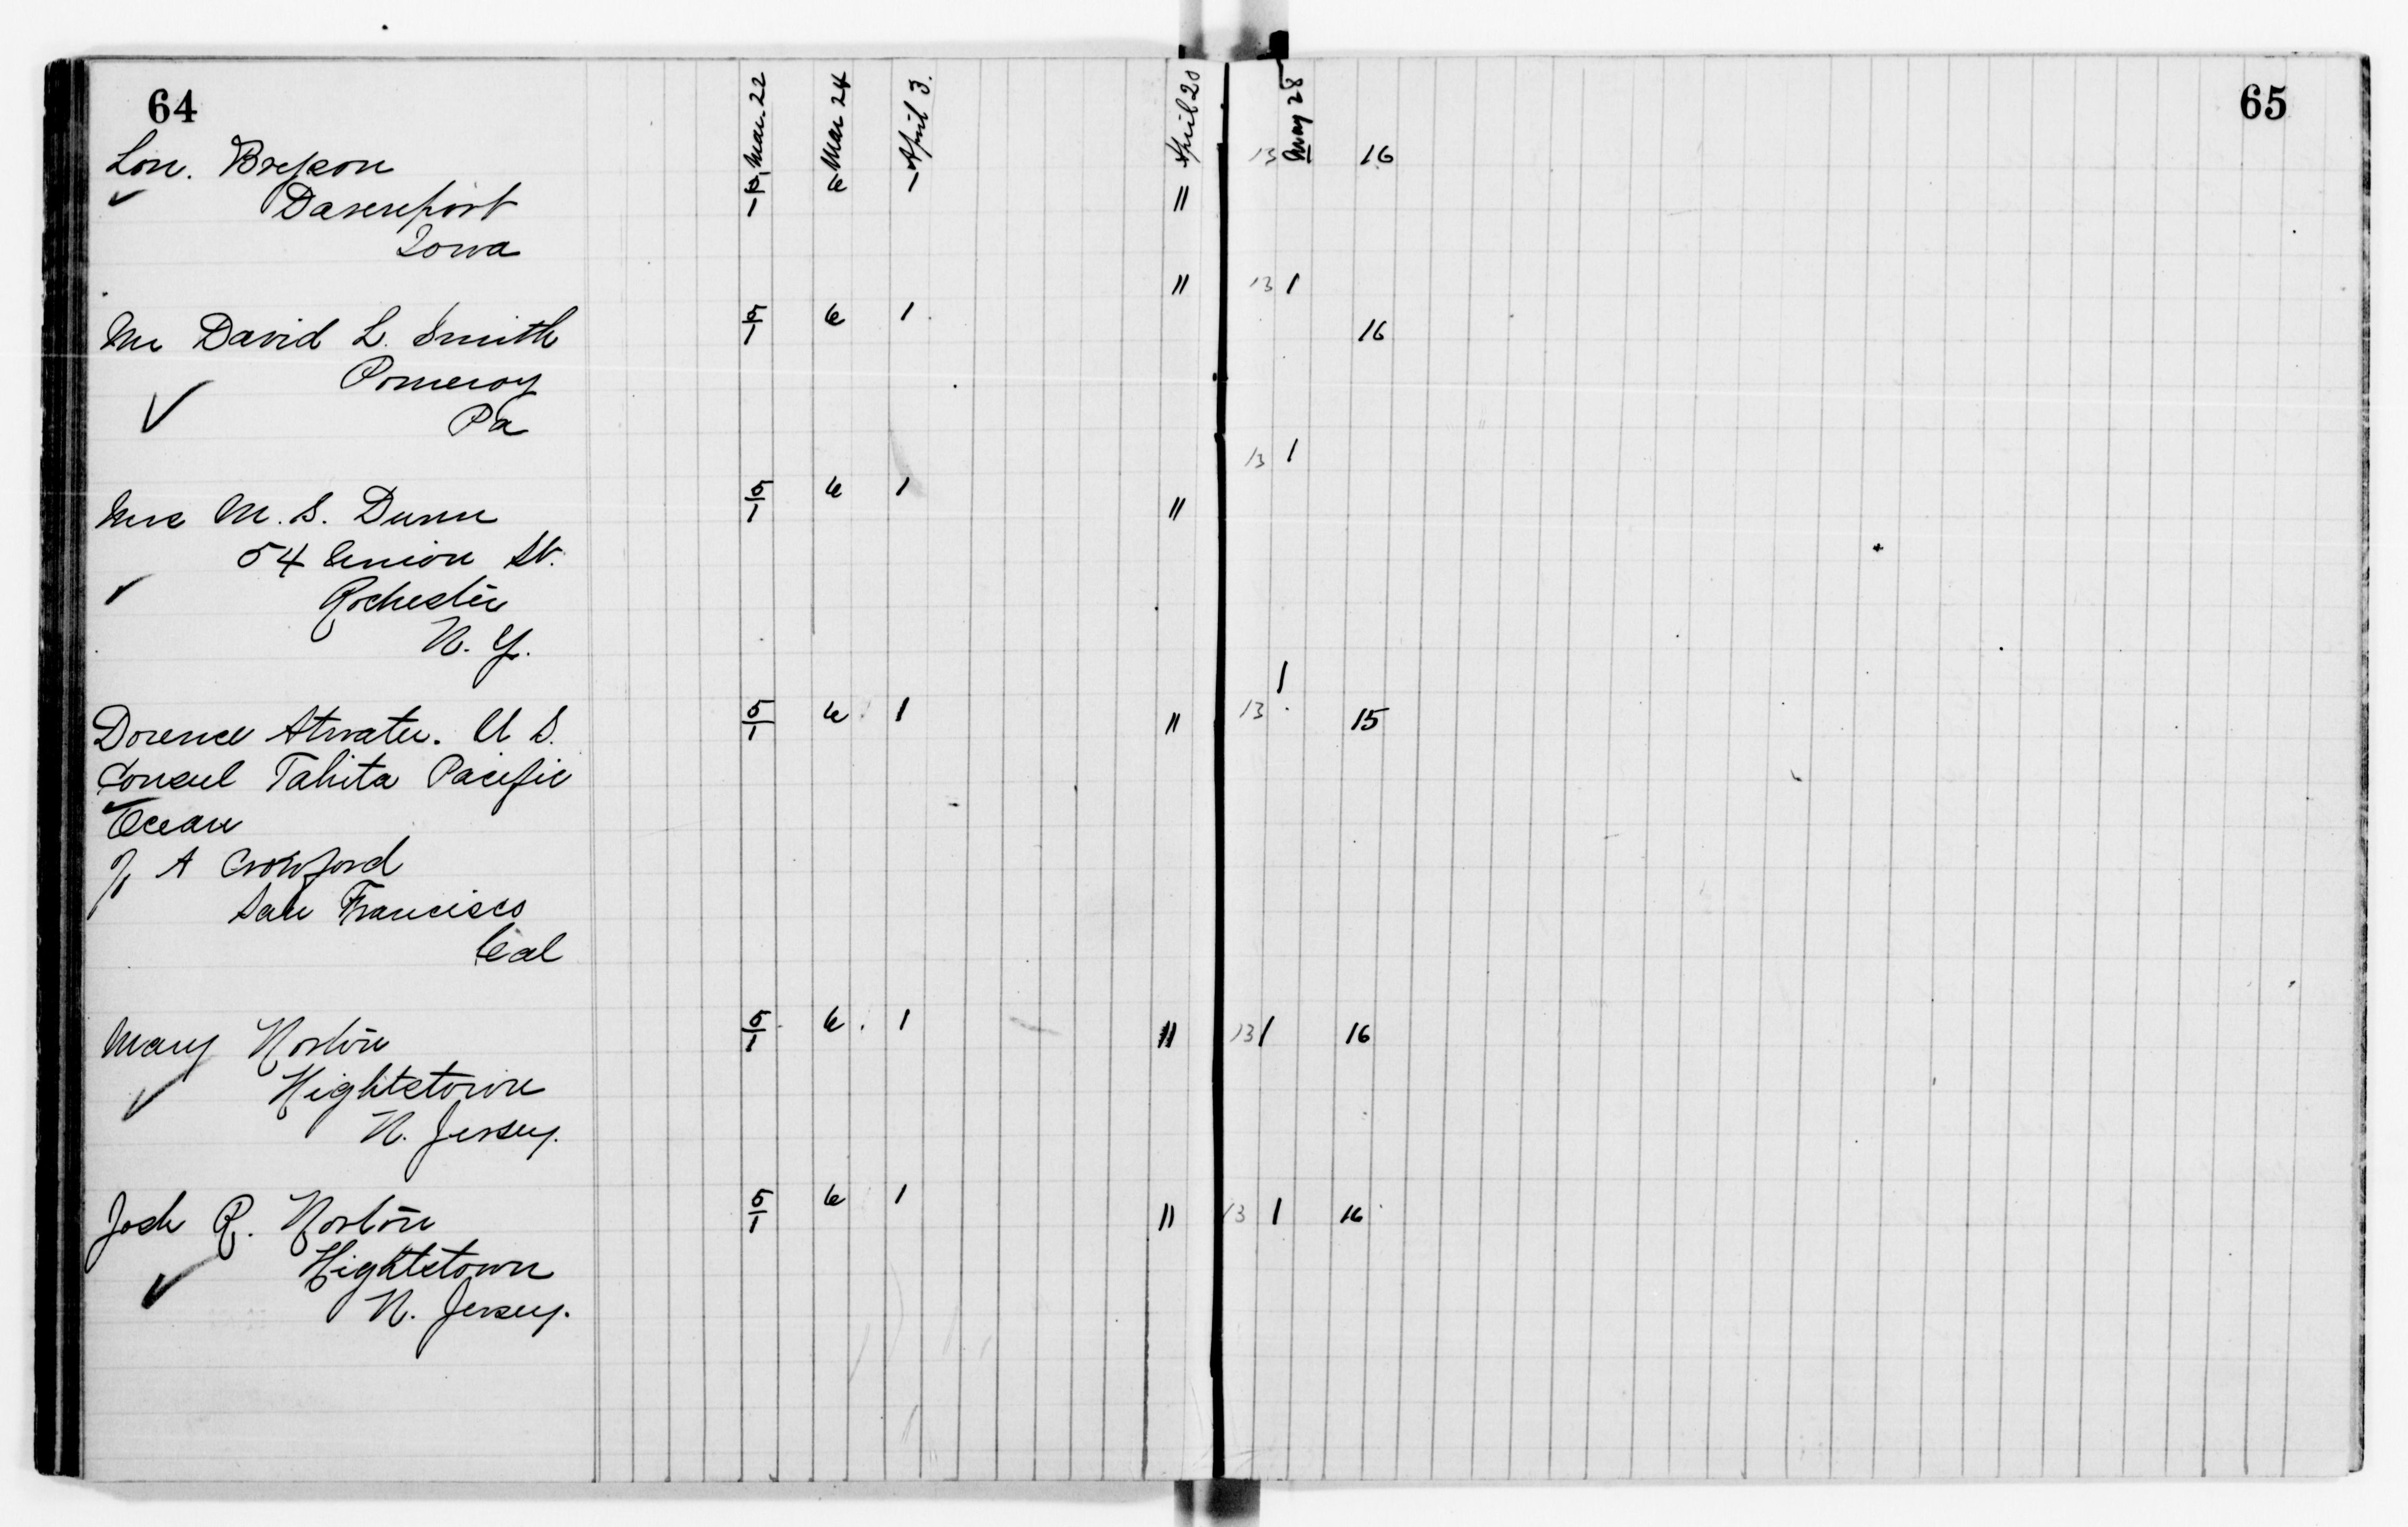 64
65
Mar. 22
Mar 24
April 3.
April 20
May 28
Lon. Bryson 5/1 6 1 11 13 16
Davenport
Iowa
11 13 1
Mr David L. Smith 5/1 6 1 16
Pomeroy
Pa
13 1
Mrs M. S. Dunn 5/1 6 1 11
54 Union St.
Rochester
N. Y.
1
Dorence Atwater. U S. 5/1 6 1 11 13 15
Consul Tahita Pacific
Ocean
c/o A Crowford
San Francisco
Cal
Mary Norton 5/1 6 1 11 13 1 16
Hightstown
N. Jersey.
Josh R. Norton 5/1 6 1 11 13 1 16
Hightstown
N. Jersey.